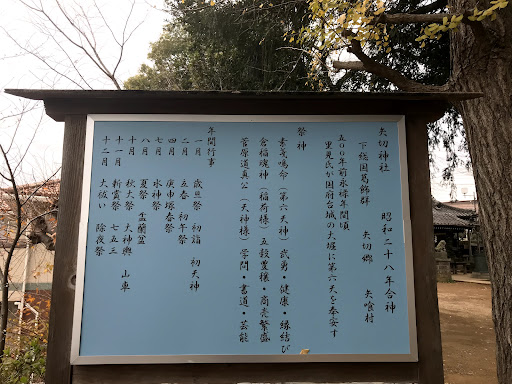 矢切神社　昭和二十八年合神
下総国葛飾郡　矢切郷　矢喰村
五〇〇年前永禄年間頃
里見氏が国府台城の大堀に第六天を奉安す
祭神
素戔嗚命（第六天神）武勇・健康・縁結び
倉稲魂神（稲荷様）五穀豊穣・商売繁盛
菅原道真公（天神様）学問・書道・芸能
年間行事
一月　歳旦祭　初詣　初天神
二月　初午祭
四月　庚申塚春祭
七月　水神祭
八月　夏祭　盂蘭盆
十月　秋大祭　大神輿　山車
十一月　新嘗祭　七五三
十二月　大祓い　除夜祭